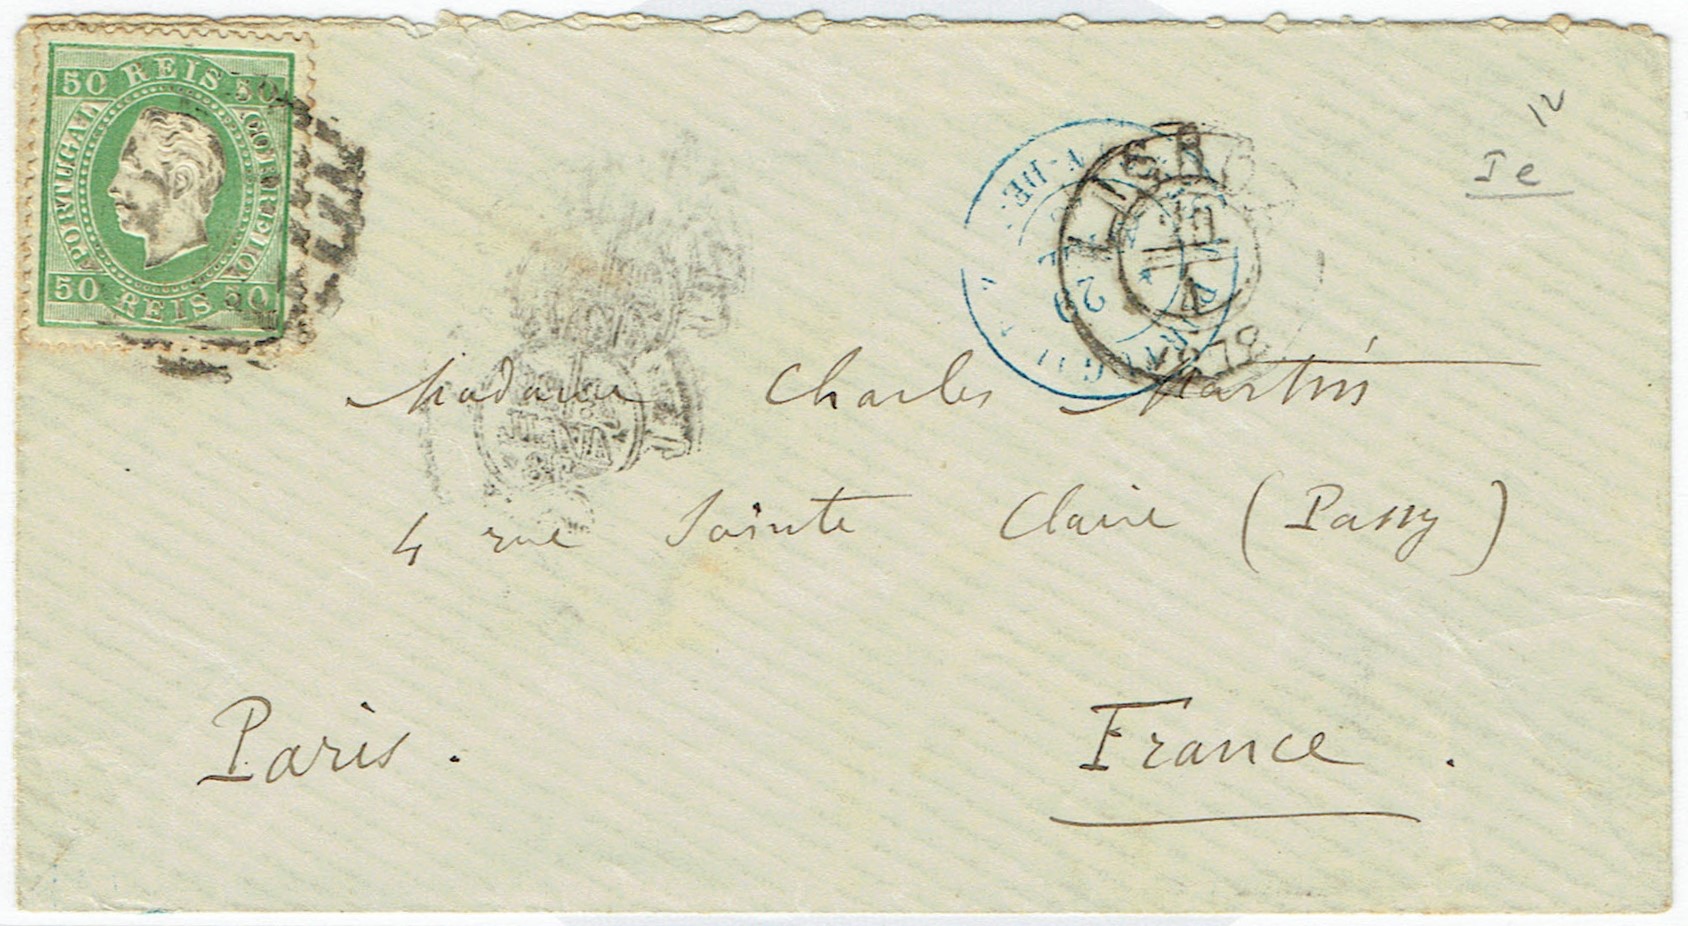 50 REIS 50
PORTUGAL
CORREIO
50 REIS 50
12
Ie
LISBOA
4
1879
29
Madame Charles Martin
4 rue Sainte Claire (Passy)
Paris.
France.